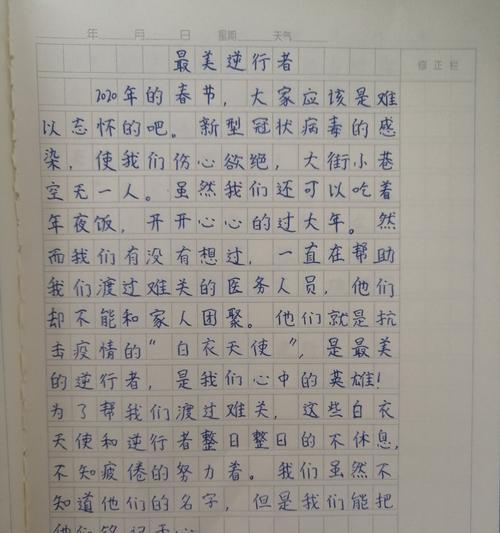 年 月 日 星期 天气
最美逆行者
修正栏
2020年的春节，大家应该是难
以忘怀的吧。新型冠状病毒的感
染，使我们伤心欲绝，大街小巷
空无一人。虽然我们还可以吃着
年夜饭，开开心心的过大年。然
而我们有没有想过，一直在帮助
我们渡过难关的医务人员，他们
却不能和家人团聚。他们就是抗
击疫情的“白衣天使”，是最美
的逆行者，是我们心中的英雄！
为了帮我们渡过难关，这些白衣
天使和逆行者整日整日的不休息，
不知疲倦的努力着。我们虽然不
知道他们的名字，但是我们能把
他们